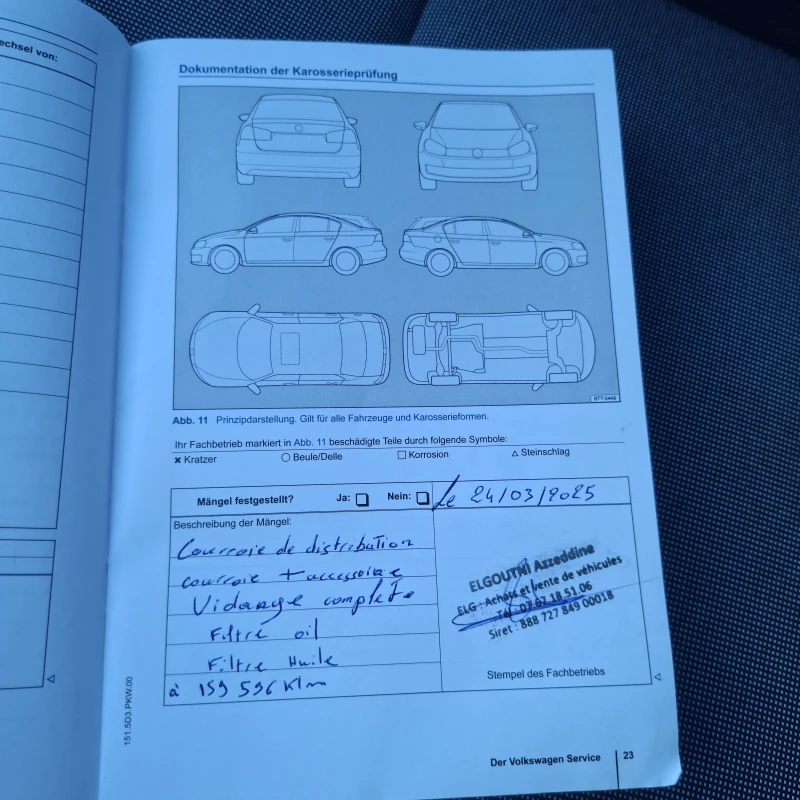 echsel von:
Dokumentation der Karosserieprüfung
BTT-0449
Abb. 11 Prinzipdarstellung. Gilt für alle Fahrzeuge und Karosserieformen.
Ihr Fachbetrieb markiert in Abb. 11 beschädigte Teile durch folgende Symbole:
× Kratzer ○ Beule/Delle □ Korrosion △ Steinschlag
Mängel festgestellt? Ja: □ Nein: □
Le 24/03/2025
Beschreibung der Mängel:
Courroie de distribution
courroie + accessoire
Vidange complète
Filtre oil
Filtre Huile
à 159 596 Klm
ELGOUTNI Azzeddine
ELG : Achats et vente de véhicules
Tél : 07 67 18 51 06
Siret : 888 727 849 00018
Stempel des Fachbetriebs
151.5D3.PKW.00
Der Volkswagen Service 23